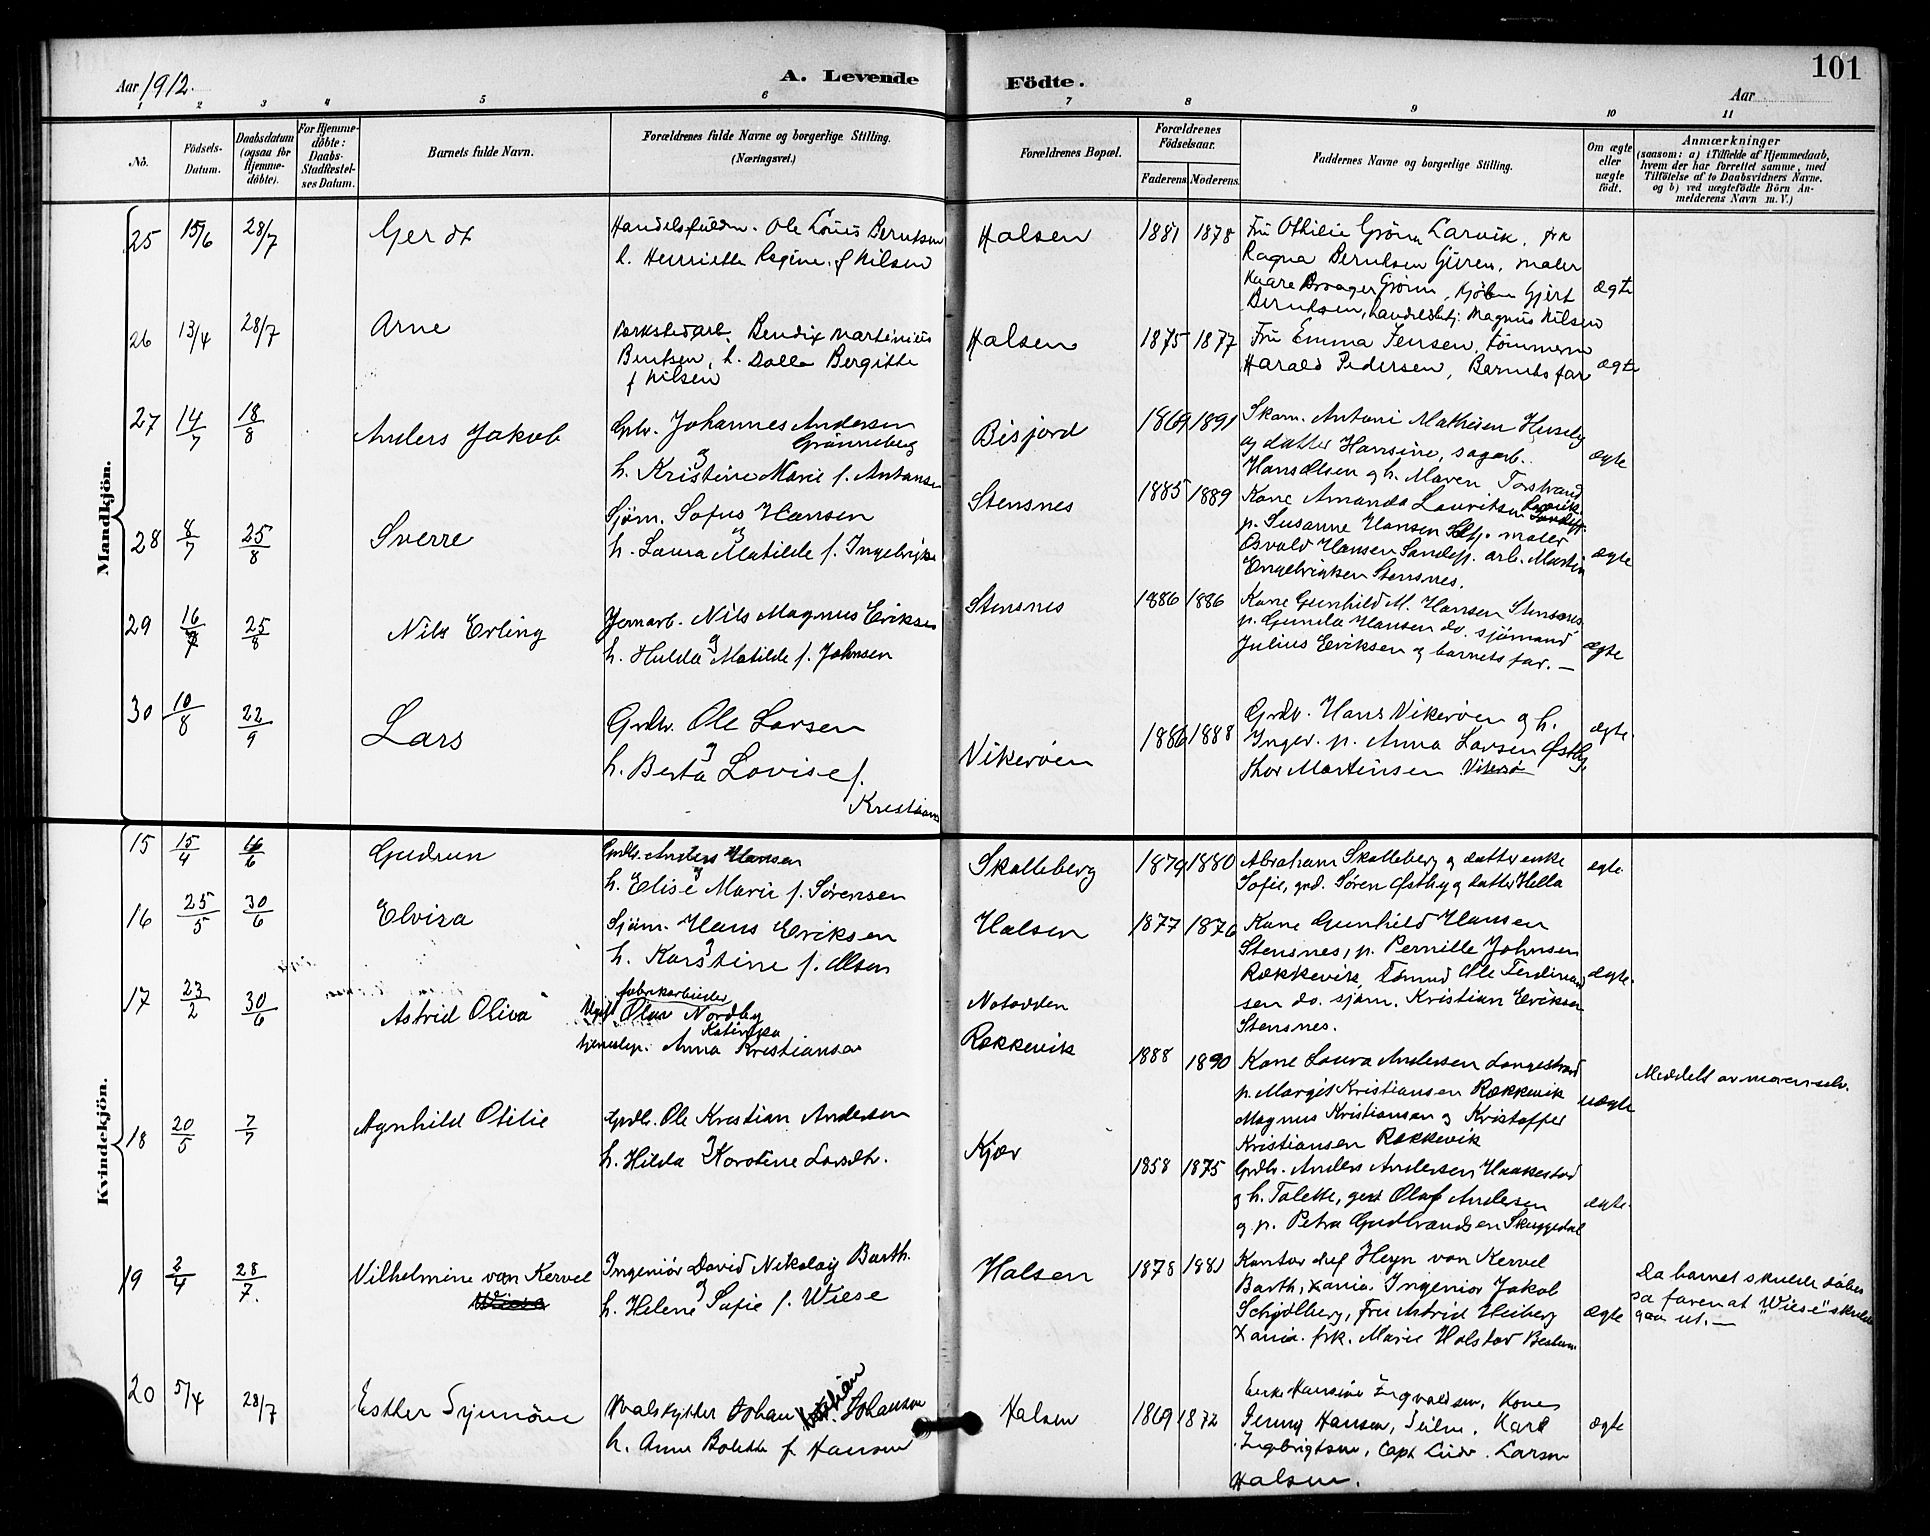 101
Aar 1912.
A. Levende
Födte.
Aar
1 2 3 4 5 6 7 8 9 10 11
No.
Födsels-
Datum.
Daabsdatum
(ogsaa for
Hjemme-
döbte).
For Hjemme-
döbte:
Daabs-
Stadfæstel-
ses Datum.
Barnets fulde Navn.
Forældrenes fulde Navne og borgerlige Stilling.
(Næringsvei.)
Forældrenes Bopæl.
Forældrenes
Födselsaar.
Faderens.
Moderens.
Faddernes Navne og borgerlige Stilling.
Om ægte
eller
uægte
födt.
Anmærkninger
(saasom: a) i Tilfælde af Hjemmedaab,
hvem der har forrettet samme, med
Tilföielse af to Daabsvidners Navne.
og b) ved uægtefödte Börn An-
melderens Navn m. V.)
Mandkjön.
25 15/6 28/7 Gerdt
Ole Louis Berntsen
h. Henriette Regine f Nilsen
Halsen 1881 1878
Fru Othilie Grønn Larvik, frk
Ragna Berntsen Giren, maler
Kaare Grønn, Gjert
Berntsen, Magnus Nilsen
ægte
26 13/4 28/7 Arne
Bendix Martinius
Berntsen, h. Dolla Bergitte
f Nilsen
Halsen 1875 1877
Fru Emma Jensen, tømmerm
Harald Pedersen, Barnets far
ægte
27 14/7 18/8 Anders Jakob
Johannes Andersen
Grønneberg
og
h. Kristine Marie f. Antonsen
Bisjord 1869 1891
Skom. Antoni Mathisen Huseby
og datter Hansine, sagarb.
Hans Olsen og h. Maren Torstrand
ægte
28 8/7 25/8 Sverre
Sjøm. Sofus Hansen
og
h. Laura Matilde f. Ingebrigtsen
Stensnes 1885 1889
Kone Amanda Lauritsen
p. Susanne Hansen maler
Osvald Hansen Sandefj. arb. Martin
Engebrigtsen Stensnes.
ægte
29 16/7 25/8 Nils Erling
Jernarb. Nils Magnus Eriksen
og
h. Hulda Matilde f. Johnsen
Stensnes 1886 1886
Kone Gunhild M. Hansen Stensnes
p. Gunda Hansen do. sjømand
Julius Eriksen og barnets far. —
ægte
30 10/8 22/9 Lars
Grdbr. Ole Larsen
og
h. Berta Lovise f.
Kristians
Vikerøen 1886 1888
Grdbr. Hans Vikerøen og h.
Inger. p. Anna Larsen Østby
Thor Martinsen Vikerø
ægte.
Kvindekjön.
15 15/4 16/6 Gudrun
Grdbr. Anders Hansen
og
h. Elise Marie f. Sørensen
Skalleberg 1879 1880
Abraham Skalleberg og datter enke
Sofie, grd. Søren Østby og datter Hella
ægte.
16 25/5 30/6 Elvira
Sjøm. Hans Eriksen
og
h. Karstine f. Olsen
Halsen 1877 1876
Kone Gunhild Hansen
Stensnes, p. Pernille Johnsen
Rækkevik, Ole Ferdinand
sen do. sjøm. Kristian Eriksen
Stensnes.
ægte.
17 23/2 30/6 Astrid Oliva
fabrikarbeider
Ungk. Olav Nordby
Katinka
tjenestep. Anna Kristiansen
Notodden
Rækkevik 1888 1890
Kone Laura Andersen Langestrand
p. Margit Kristiansen Rækkevik
Magnus Kristiansen og Kristoffer
Kristiansen Rækkevik
uægte
Meddelt av moren selv.
18 20/5 7/7 Agnhild Otilie
Grdbr. Ole Kristian Andersen
og
h. Hilda Karoline Larsdtr.
Kjær 1858 1875
Grdbr. Anders Andersen Haakestad
og h. Talette, gert Olaf Andersen
og p. Petra Gudbrandsen Skuggedal
ægte.
19 2/4 28/7. Vilhelmine van Kervel
Wiese
Ingeniør David Nikolay Barth.
og
h. Helene Sofie f. Wiese
Halsen 1878 1881
Kontorchef Heyn von Kervel
Barth, Xania. Ingeniør Jakob
Schjølberg, Fru Astrid Heiberg
Xania. frk. Marie Holstad Bestum
ægte
Da barnet skulde døbes
sa faren at "Wiese" skulde
gaa ut. —
20 5/4 28/7 Esther Synnöve
Hvalskytter Johan Johansen
h. Anne Bolette f Hansen
Halsen 1869 1872
Enke Hansine Ingvaldsen, Kone
Jenny Hansen, Karl
Ingebrigtsen, Capt Ludv. Larsen
Halsen.
ægte